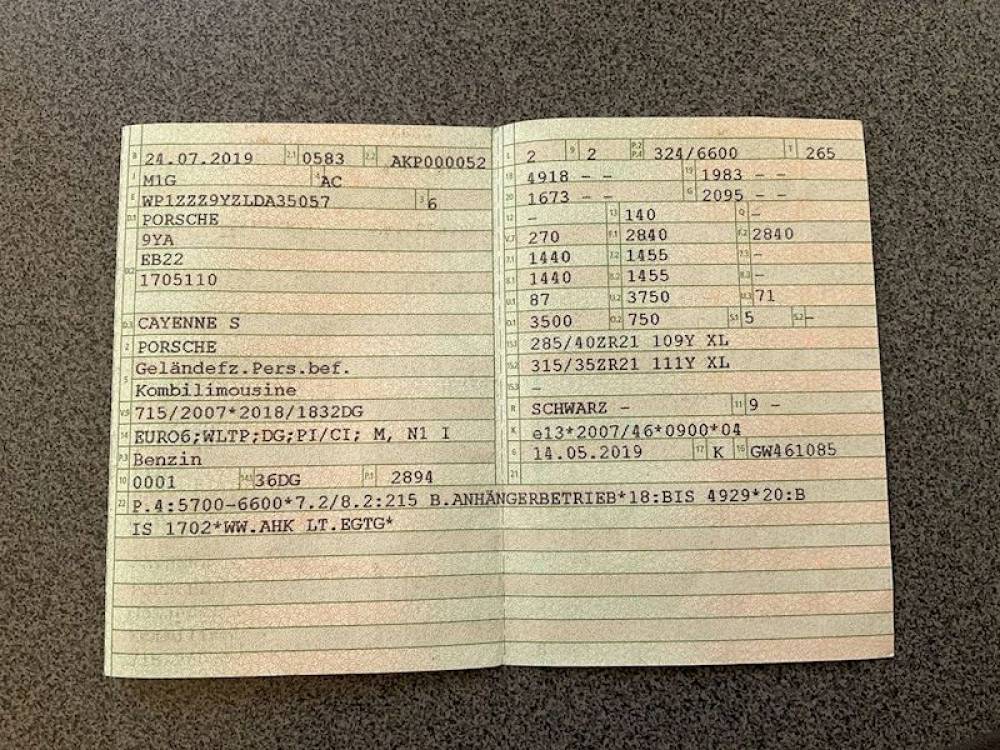 B 24.07.2019 2.1 0583 2.2 AKP000052
J M1G 4 AC
E WP1ZZZ9YZLDA35057 3 6
D.1 PORSCHE
9YA
EB22
D.2 1705110
D.3 CAYENNE S
2 PORSCHE
5 Geländefz.Pers.bef.
Kombilimousine
V.9 715/2007*2018/1832DG
14 EURO6;WLTP;DG;PI/CI; M, N1 I
P.3 Benzin
10 0001 14.1 36DG P.1 2894
L 2 9 2 P.2 P.4 324/6600 T 265
18 4918 - - 19 1983 - -
20 1673 - - G 2095 - -
12 - 13 140 Q -
V.7 270 F.1 2840 F.2 2840
7.1 1440 7.2 1455 7.3 -
8.1 1440 8.2 1455 8.3 -
U.1 87 U.2 3750 U.3 71
O.1 3500 O.2 750 S.1 5 S.2 -
15.1 285/40ZR21 109Y XL
15.2 315/35ZR21 111Y XL
15.3 -
R SCHWARZ - 11 9 -
K e13*2007/46*0900*04
6 14.05.2019 17 K 16 GW461085
21
22 P.4:5700-6600*7.2/8.2:215 B.ANHÄNGERBETRIEB*18:BIS 4929*20:B
IS 1702*WW.AHK LT.EGTG*